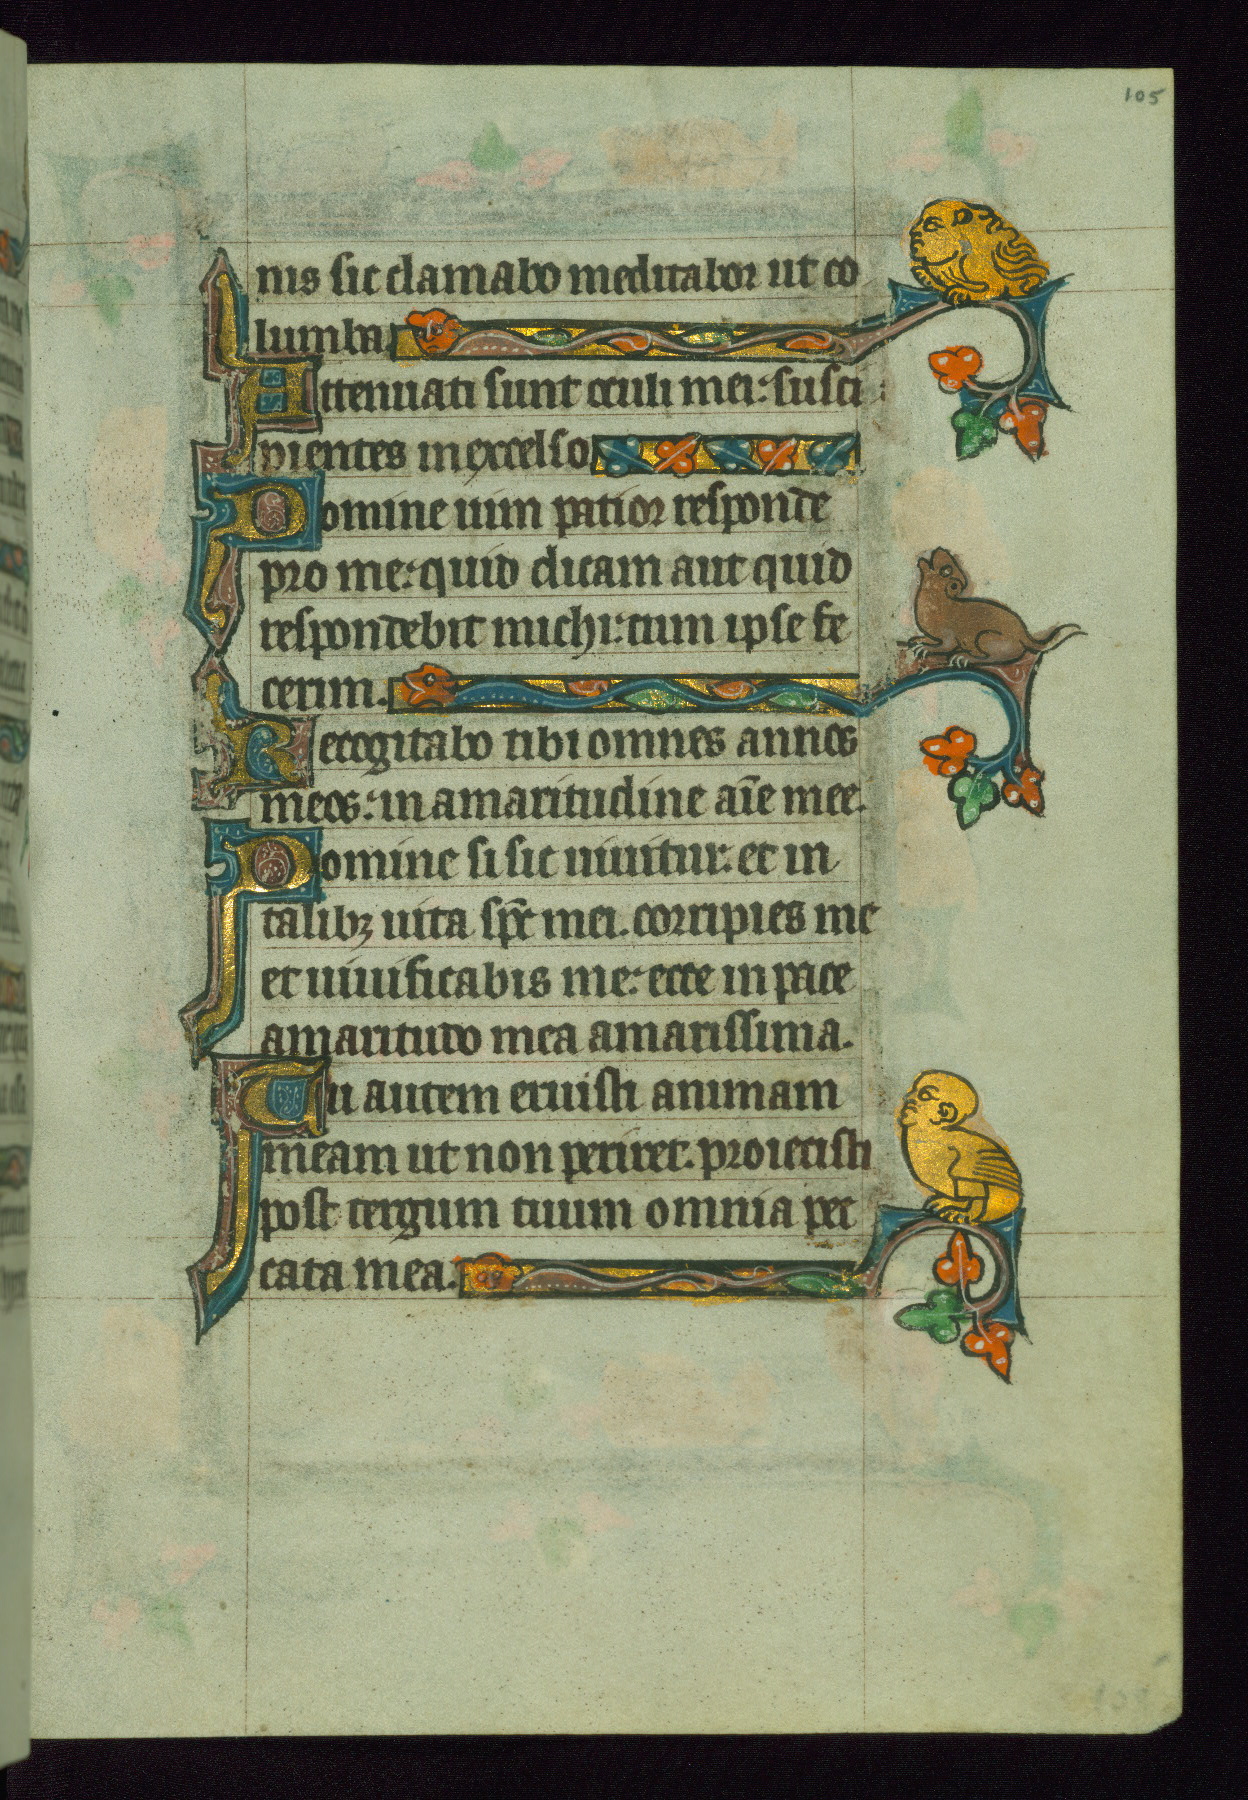 105
nis sic clamabo meditabor ut co
lumba
Attenuati sunt oculi mei: susci
pientes in excelso
Domine uim patior responde
pro me: quid dicam aut quid
respondebit michi: cum ipse fe
cerim.
Recogitabo tibi omnes annos
meos: in amaritudine aīe mee.
Domine si sic uiuitur: et in
talibꝫ uita sp̄c mei. corripies me
et uiuificabis me: ecce in pace
amaritudo mea amarissima.
Tu autem eruisti animam
meam ut non periret. proiecisti
post tergum tuum omnia pec
cata mea.